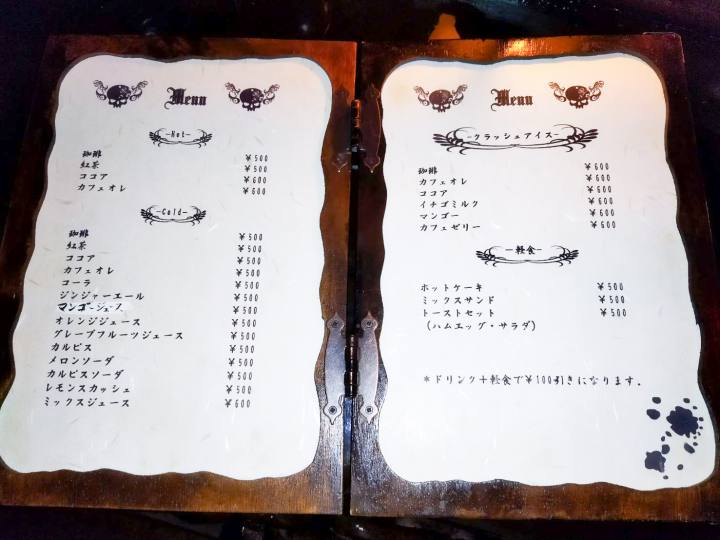 Menu
-Hot-
珈琲 ¥500
紅茶 ¥500
ココア ¥600
カフェオレ ¥600
-Cold-
珈琲 ¥500
紅茶 ¥500
ココア ¥500
カフェオレ ¥500
コーラ ¥500
ジンジャーエール ¥500
マンゴージュース ¥500
オレンジジュース ¥500
グレープフルーツジュース ¥500
カルピス ¥500
メロンソーダ ¥500
カルピスソーダ ¥500
レモンスカッシュ ¥500
ミックスジュース ¥600
Menu
-クラッシュアイス-
珈琲 ¥600
カフェオレ ¥600
ココア ¥600
イチゴミルク ¥600
マンゴー ¥600
カフェゼリー ¥600
-軽食-
ホットケーキ ¥500
ミックスサンド ¥500
トーストセット ¥500
(ハムエッグ・サラダ)
*ドリンク+軽食で¥100引きになります.